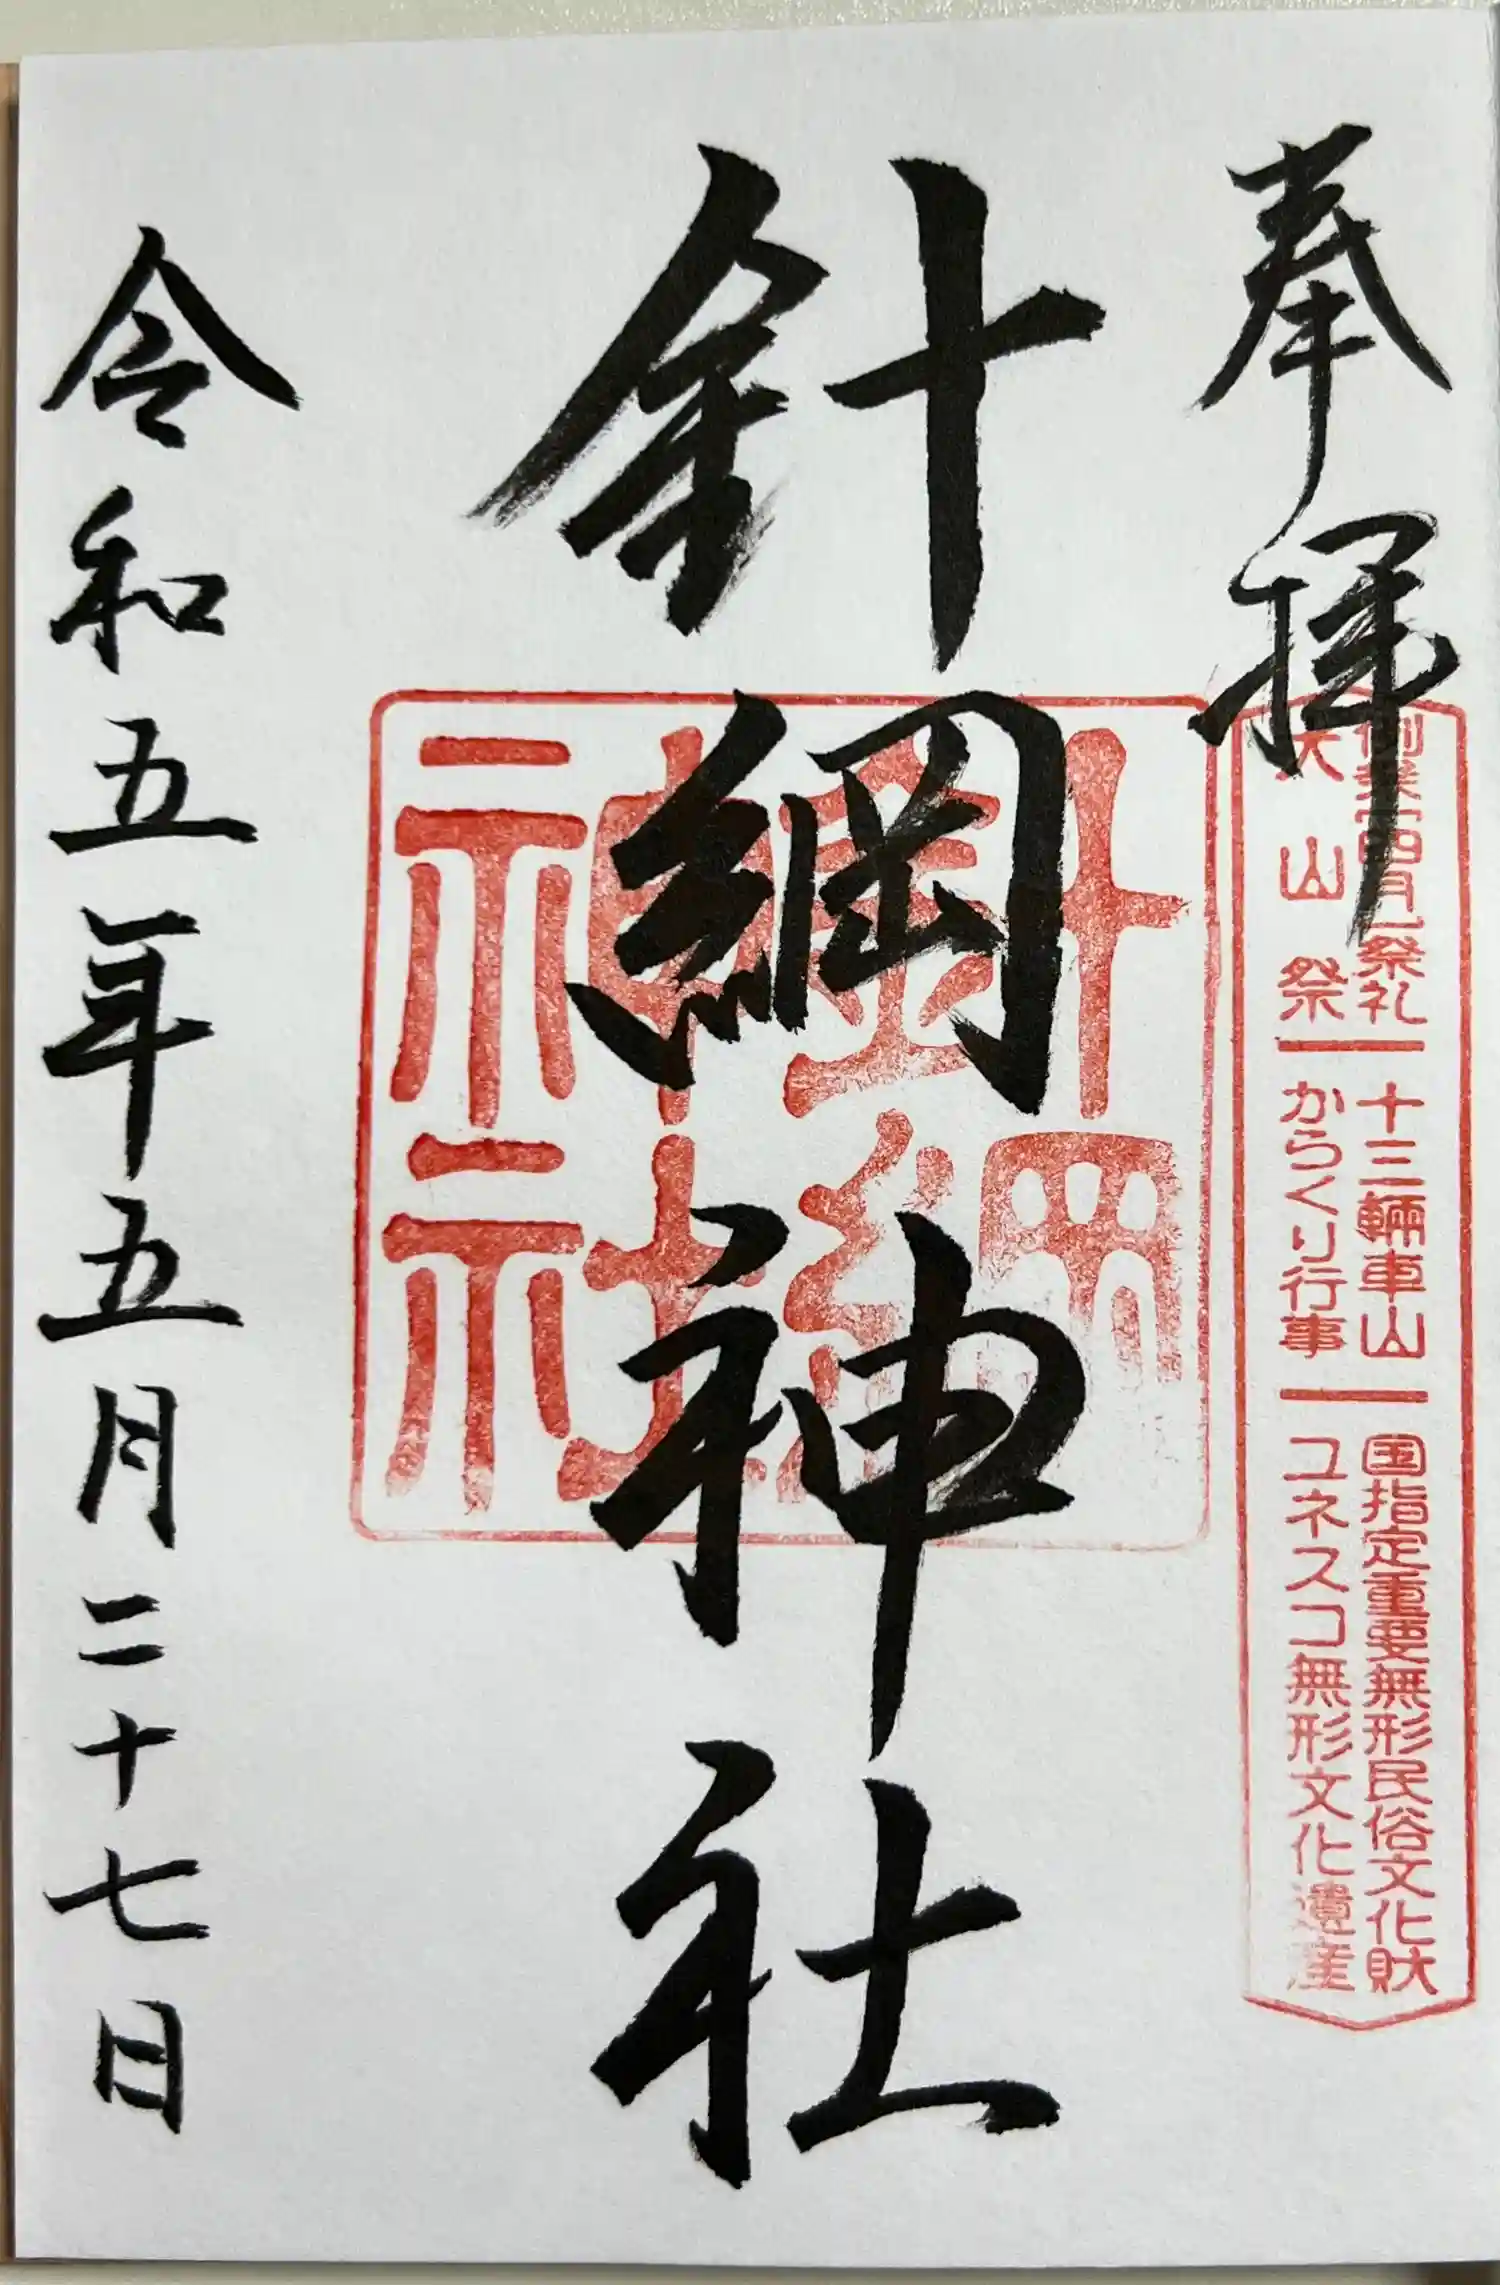 奉拝
祭礼 十三輛車山 国指定重要無形民俗文化財
犬山祭 からくり行事 ユネスコ無形文化遺産
針綱神社
針綱
神社
令和五年五月二十七日